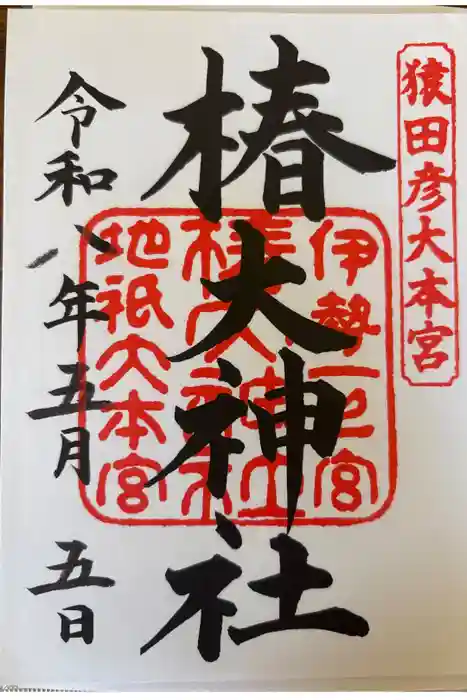 猿田彦大本宮
椿大神社
伊勢一之宮
椿大神社
地祇大本宮
令和八年五月五日